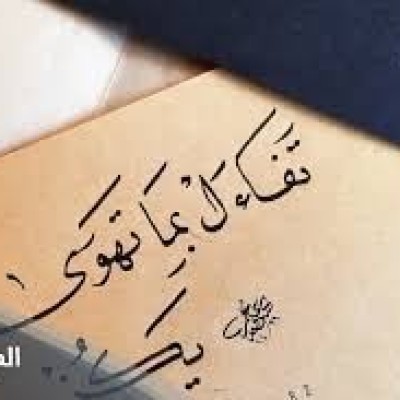 تَفَاءلْ بِمَا تهوَى
يكُن